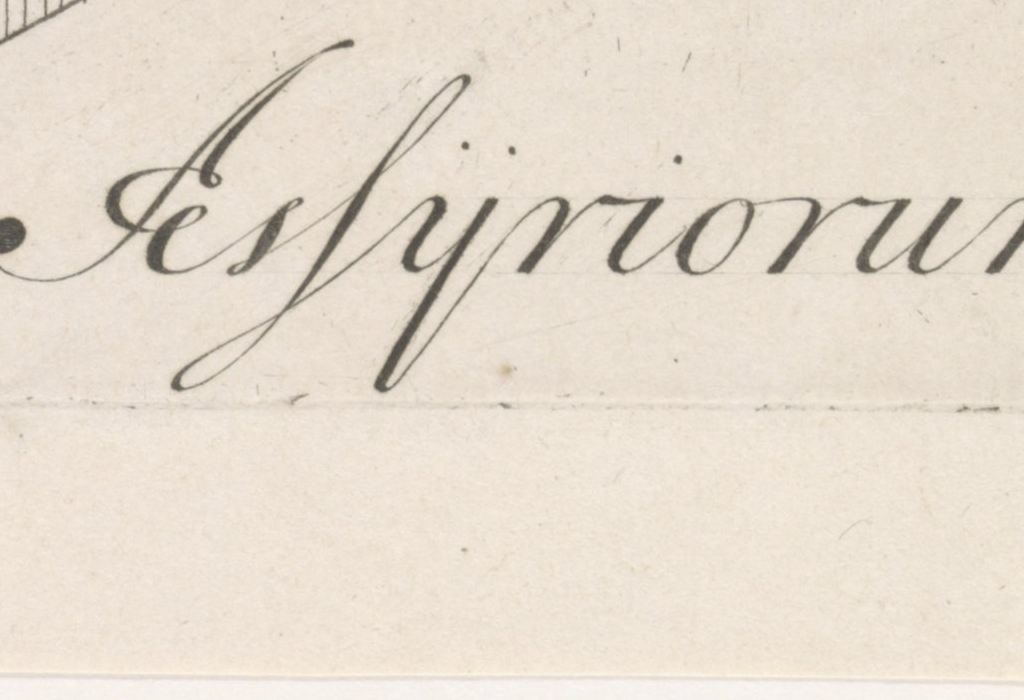 Æsſÿriorum